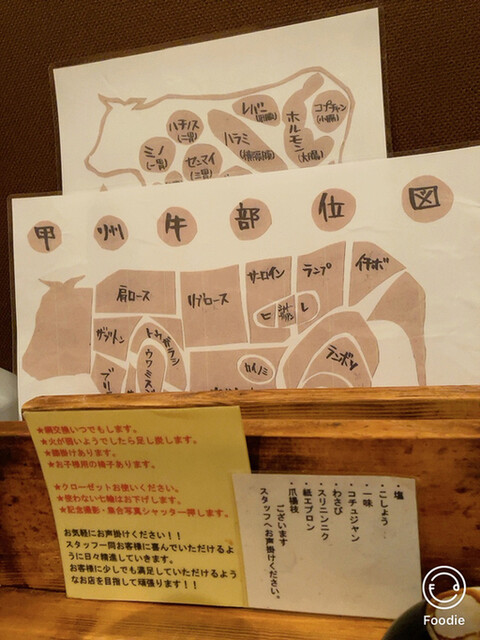 レバー
(肝臓)
コプチャン
(小腸)
ハチノス
(二胃)
ハラミ
(横隔膜)
ホルモン
(大腸)
ミノ
(一胃)
センマイ
(三胃)
甲州牛部位図
肩ロース
リブロース
サーロイン
ランプ
イチボ
ヒ
レ
ザブトン
トウガラシ
ウワミスジ
カイノミ
ランボソ
★網交換いつでもします。
★火が弱いようでしたら足し炭します。
★膝掛けあります。
★お子様用の椅子あります。
★クローゼットお使いください。
★使わない七輪はお下げします。
★記念撮影・集合写真シャッター押します。
お気軽にお声掛けください!!
スタッフ一同お客様に喜んでいただけるよ
うに日々精進していきます。
お客様に少しでも満足していただけるよう
なお店を目指して頑張ります!!
・塩
・こしょう
・一味
・コチュジャン
・わさび
・スリニンニク
・紙エプロン
・爪楊枝
ございます
スタッフへお声掛けください。
Foodie